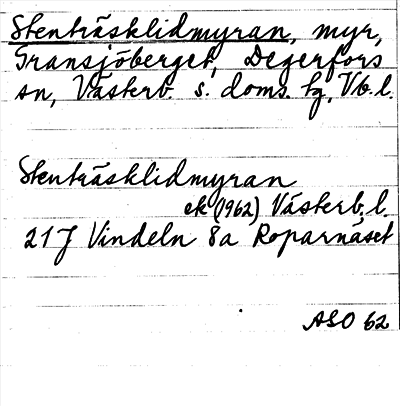 Stenträsklidmyran, myr,
Gransjöberget, Degerfors
sn, Västerb. s. doms. tg, Vb. l.
Stenträsklidmyran
ek (1962) Västerb. l.
21J Vindeln 8a Roparnäset
ASO 62